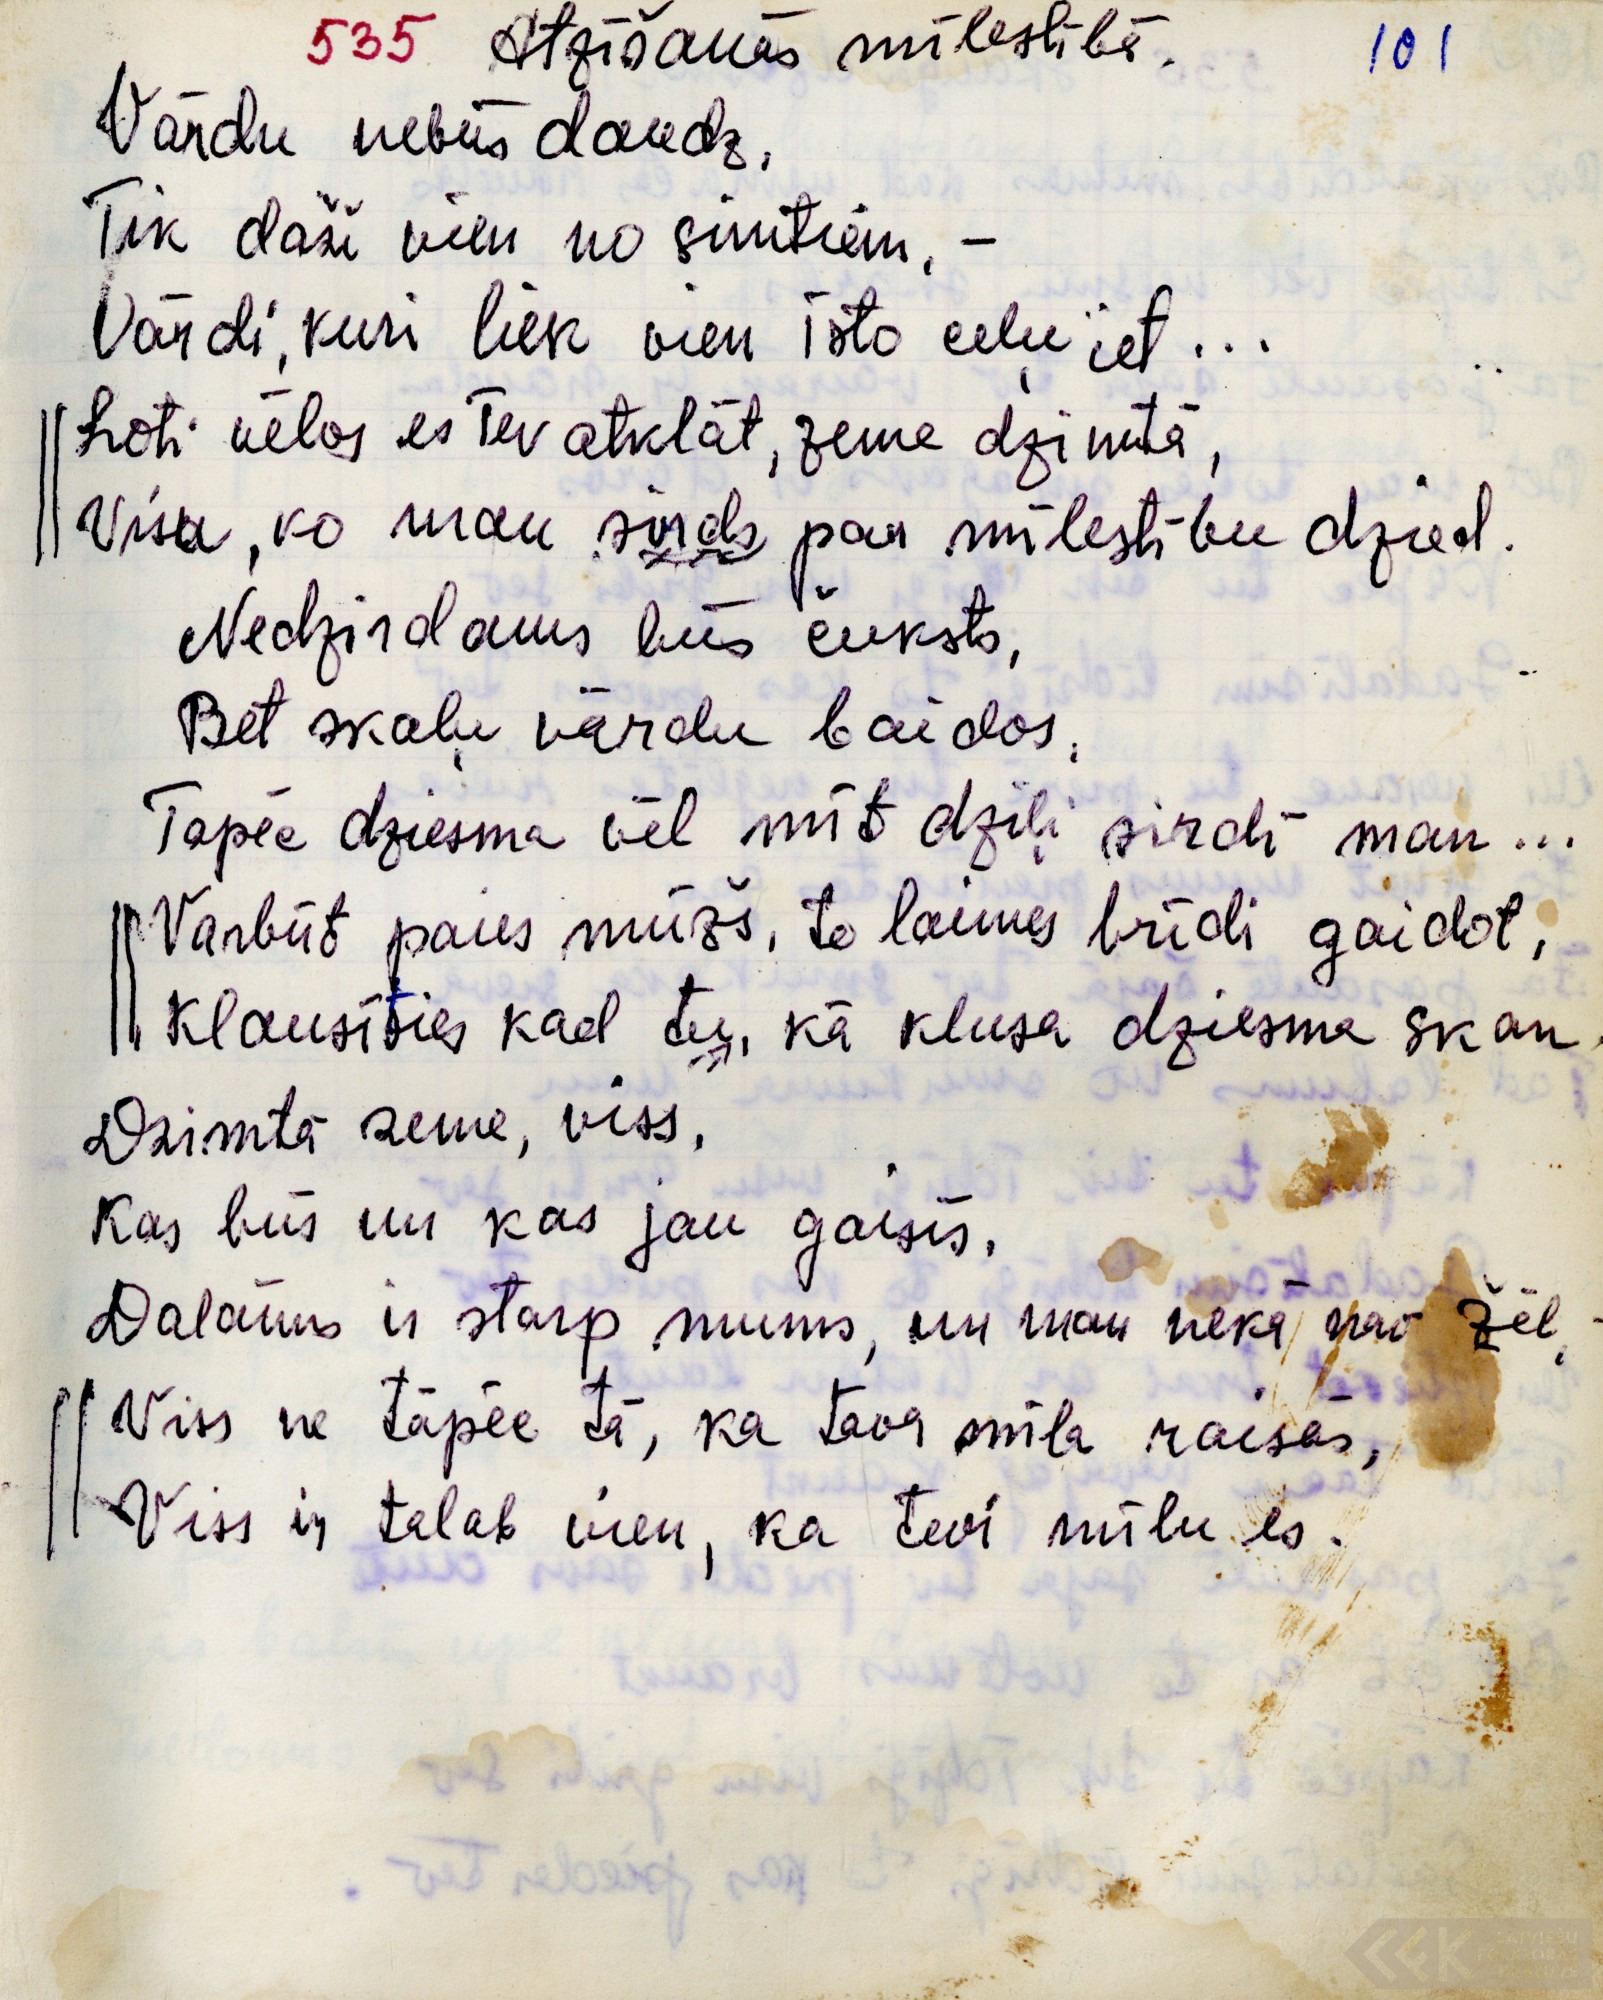 535 Atzīšanās mīlestībā. 101
Vārdu nebūs daudz,
Tik daži vien no simtiem, –
Vārdi, kuri liek vien īsto ceļu iet...
Ļoti vēlos es Tev atklāt, zeme dzimtā,
Visu, ko man sirds par mīlestību dzied.
Nedzirdams būs čuksts,
Bet skaļu vārdu baidos,
Tapēc dziesma vēl mīt dziļi sirdī man...
Varbūt paies mūžs, to laimes brīdi gaidot,
Klausīties kad tu, kā klusa dziesma skan.
Dzimtā zeme, viss,
Kas būs un kas jau gaisis,
Dalāms ir starp mums, un man nekā nav žēl, –
Viss ne tāpēc tā, ka tava mīla raisās,
Viss ir talab vien, ka tevi mīlu es.